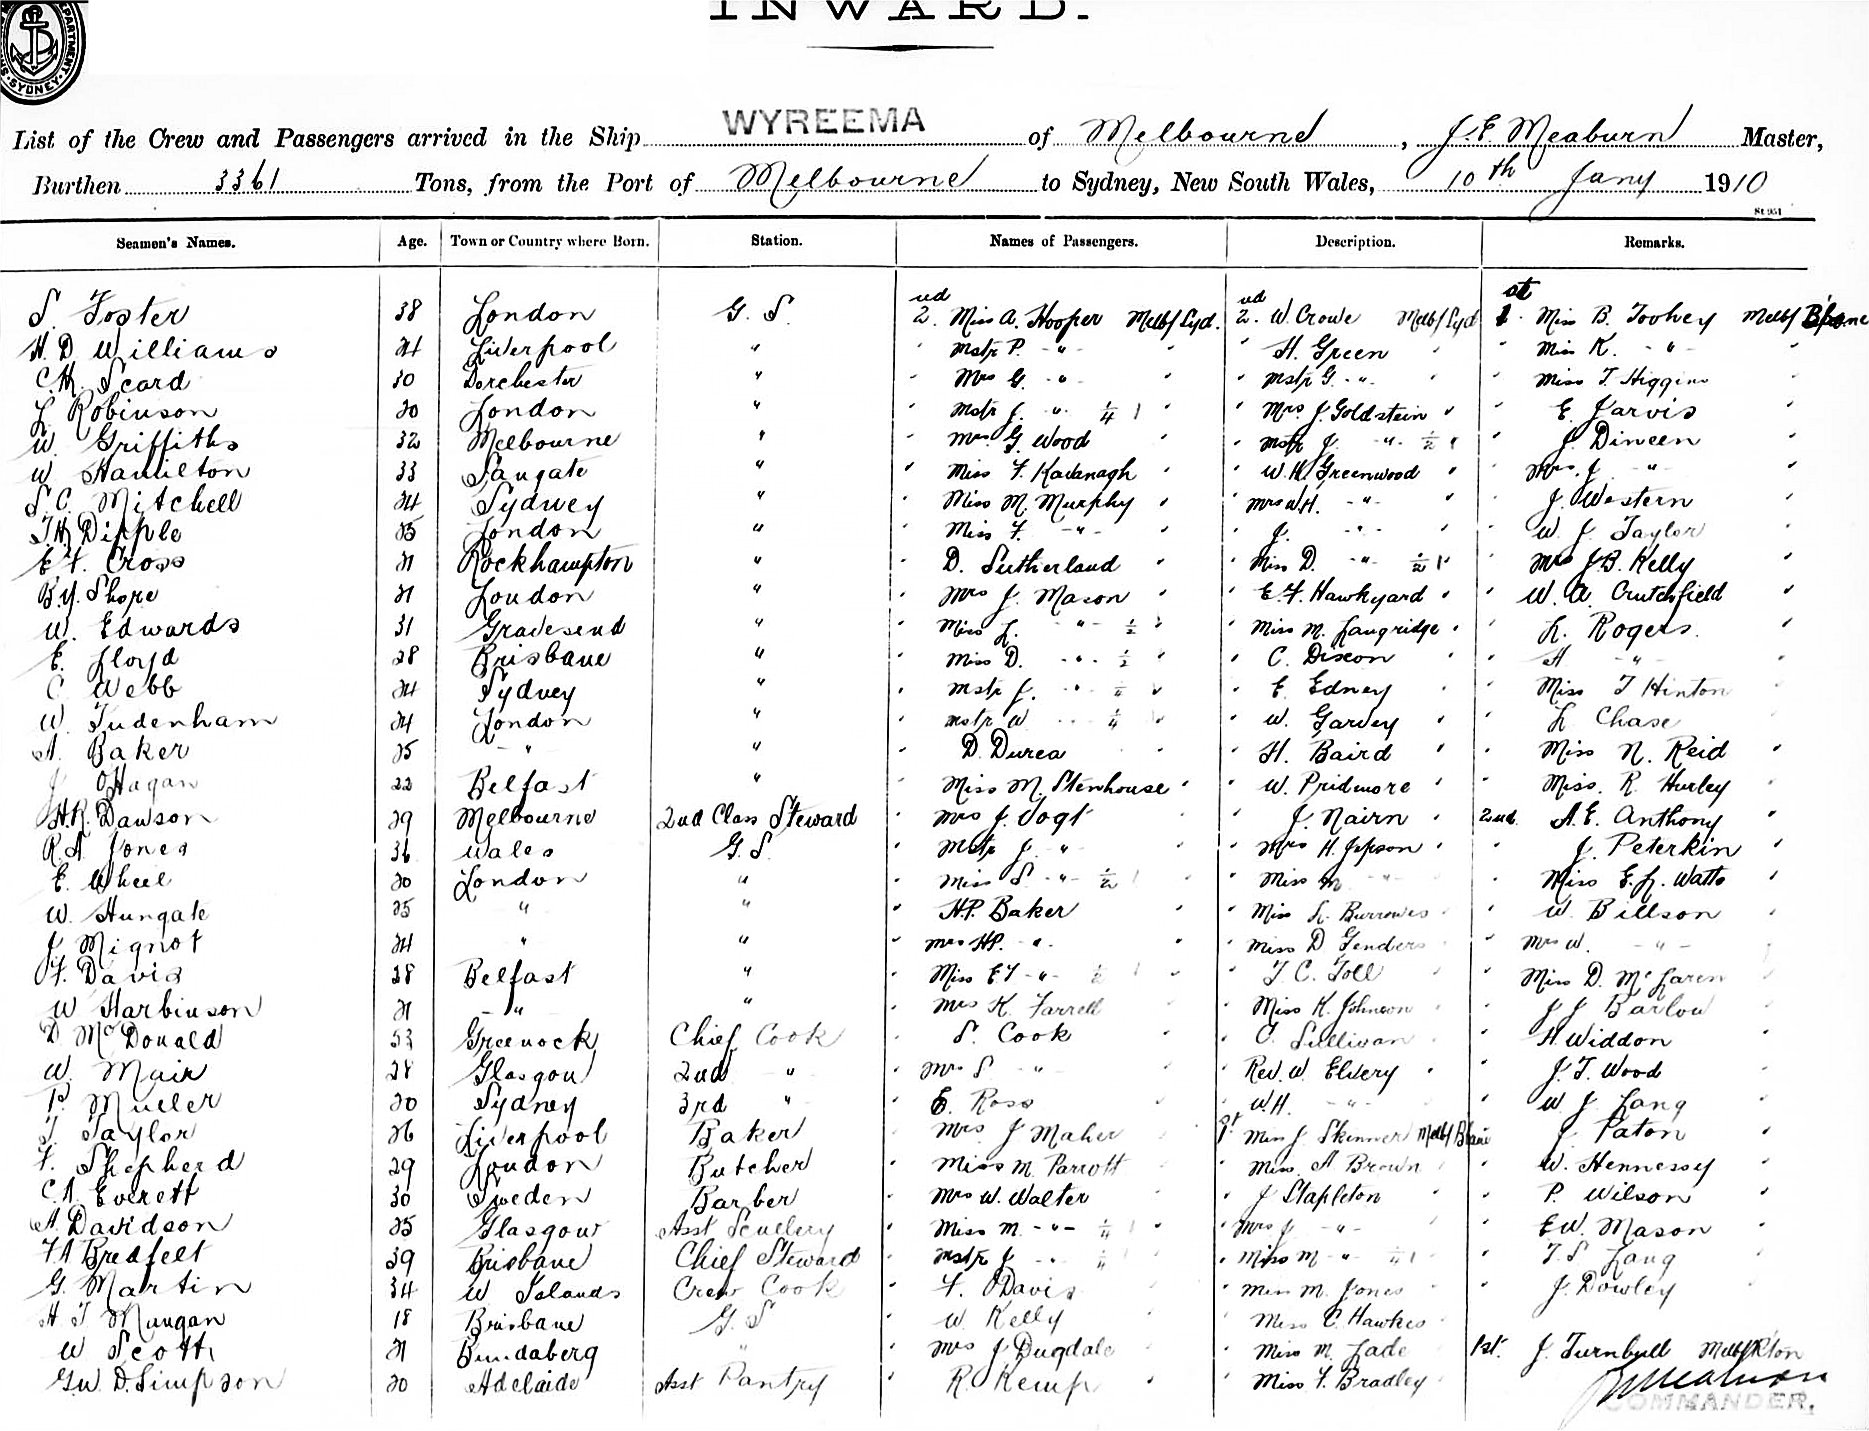 INWARD.
DEPARTMENT SYDNEY
List of the Crew and Passengers arrived in the Ship WYREEMA of Melbourne, J. E. Meaburn Master,
Burthen 3361 Tons, from the Port of Melbourne to Sydney, New South Wales, 10th Jany 1910
St. 951
Seamen's Names. Age. Town or Country where Born. Station. Names of Passengers. Description. Remarks.
S. Foster 38 London G. S. 2nd. Miss A. Hooper Melb/Syd. 2nd. W. Crowe Melb/Syd 1st. Miss B. Toohey Melb/B'bane
H. D. Williams 24 Liverpool " " Mstr P. -"- " H. Green " " Miss K. -"- "
C. H. Scard 30 Dorchester " " Mrs G. -"- " " Mstr G. -"- " " Miss T. Higgins "
L Robinson 20 London " " Mstr J. -"- 1/4 " " Mrs J. Goldstein " " E. Jarvis "
W. Griffiths 32 Melbourne " " Mrs G. Wood " " Mstr J. -"- 1/2 " " J. Dineen "
W Hamilton 33 " " Miss F. Kavanagh " " W. H. Greenwood " " Mrs. J -"- "
S. C. Mitchell 24 Sydney " " Miss M. Murphy " " Mrs W. H. -"- " " J. Western "
T H Dipple 25 London " " Miss F. -"- " " J. -"- " " W. J. Taylor "
E F. Cross 21 Rockhampton " " D. Sutherland " " Miss D. -"- 1/2 " " Mrs J. B. Kelly "
B. Y. Shope 21 London " " Mrs J. Mason " " E. F. Hawkyard " " W. A. Crutchfield "
W. Edwards 31 Gravesend " " Miss L. -"- 1/2 " " Miss M. Langridge " " L. Rogers. "
E. Lloyd 28 Brisbane " " Miss D. -"- 1/2 " " C. Dixon " " A -"- "
C Webb 24 Sydney " " Mstr J. -"- 1/4 " " E. Edney " " Miss T Hinton "
W. Tudenham 24 London " " Mstr W -"- 1/4 " " W. Garvey " " L Chase "
A. Baker 25 -"- " " D. Durea " " H. Baird " " Miss N. Reid "
J O'Hagan 22 Belfast " " Miss M. Stenhouse " " W. Pridmore " " Miss. R Hurley "
H. R. Dawson 29 Melbourne 2nd Class Steward " Mrs J. Vogt " " J. Nairn " 2nd. A. E. Anthony "
R A Jones 36 Wales G. S. " Mstr J. -"- " " Mrs H. Jepson " " J. Peterkin "
E. Wheel 20 London " " Miss S. -"- 1/2 " " Miss M -"- " " Miss E. L. Watts "
W. Hungate 25 " " " H. P. Baker " " Miss L. Burrowes " " W. Billson "
J Mignot 24 " " " Mrs H. P. -"- " " Miss D Genders " " Mrs W. -"- "
F. David 28 Belfast " " Miss E T -"- 1/2 " " T. C. Toll " " Miss D. McLaren "
W Harbinson 21 -"- " " Mrs K. Farrell " " Miss K. Johnson " " J J Barlow "
D McDonald 53 Greenock Chief Cook " S. Cook " " O. Sullivan " " H. Widdon "
W. Mair 28 Glasgow 2nd " Mrs S -"- Rev. W. Elvery " " J. T. Wood "
P. Muller 20 Sydney 3rd " E. Ross " W. H. -"- " W J Lang "
T Taylor 26 Liverpool Baker Mrs J Maher " 1st Miss J. Skinner Melb/B'bane " J. Paton "
F. Shepherd 29 London Butcher " Miss M. Parrott " " Miss. A Brown " " W. Hennessy "
C. A. Everett 30 Sweden Barber " Mrs W. Walter " " J Stapleton " " P. Wilson "
A. Davidson 25 Glasgow Asst Scullery " Miss M. -"- 1/4 " " Mrs J -"- " " E W. Mason "
F A Bredfelt 39 Brisbane Chief Steward " Mstr J -"- 1/4 " Miss M -"- 1/4 " T. S Lang "
G. Martin 34 W Islands Crew Cook " F. Davis " " Miss M. Jones " " J. Dowley "
H T Mungan 18 Brisbane G. S " W. Kelly " Miss C. Hawkes "
W Scott 21 Bundaberg " " Mrs J Dugdale " Miss M. Jade " 1st. J. Turnbull Melb/R'ton
G. W. D. Simpson 20 Adelaide Asst Pantry " R. Kemp " " Miss F. Bradley "
COMMANDER.